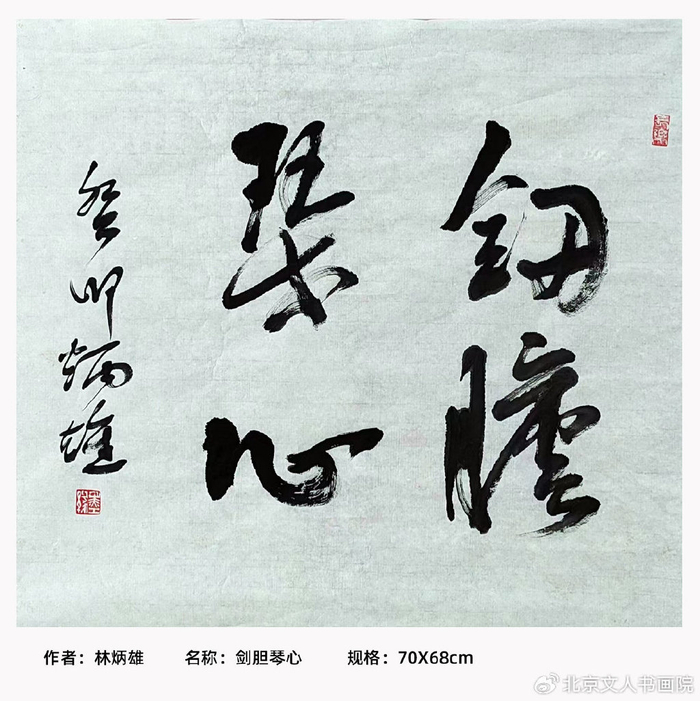 釰膽
琹心
癸卯炳雄
作者：林炳雄 名称：剑胆琴心 规格：70X68cm
北京文人书画院